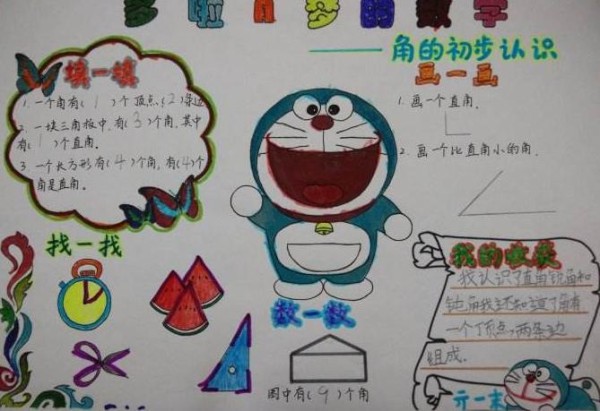 多啦A梦的数学
——角的初步认识
填一填
1.一个角有(1)个顶点,(2)条边
2.一块三角板中,有(3)个角,其中
有(1)个直角。
3.一个长方形有(4)个角,有(4)个
角是直角。
画一画
1.画一个直角。
2.画一个比直角小的角。
找一找
数一数
图中有(9)个角
我的收获
我认识了直角锐角和
钝角我还知道了角有
一个顶点,两条边
组成。